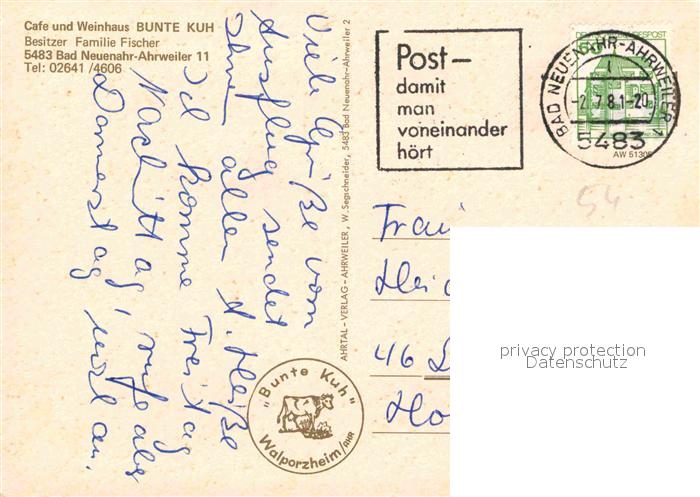 Cafe und Weinhaus BUNTE KUH
Besitzer Familie Fischer
5483 Bad Neuenahr-Ahrweiler 11
Tel: 02641 /4606
Viele Grüße vom
Ausflug sendet
Ihnen allen
Ich komme Freitag
Nachmittag, rufe aber
Donnerstag an.
AHRTAL - VERLAG - AHRWEILER, W. Segschneider, 5483 Bad Neuenahr-Ahrweiler 2
"Bunte Kuh"
Walporzheim/AHR
Post–
damit
man
voneinander
hört
BAD NEUENAHR-AHRWEILER 1
-2.7.81-20
5483
AW 5130
54
Frau
Heid
46
Ho
privacy protection
Datenschutz